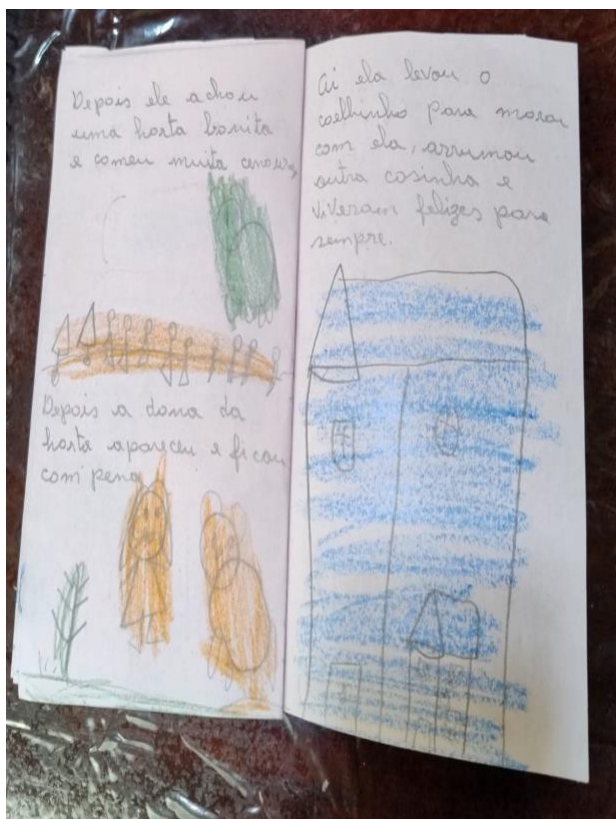 Depois ele achou
uma horta bonita
e comeu muita cenoura
Depois a dona da
horta apareceu e ficou
com pena
Ai ela levou o
coelhinho para morar
com ela, arrumou
outra cosinha e
viveram felizes para
sempre.